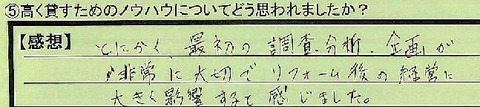 ⑤高く貸すためのノウハウについてどう思われましたか？
【感想】とにかく、最初の調査、分析、企画が
非常に大切でリフォーム後の経営に
大きく影響すると感じました。